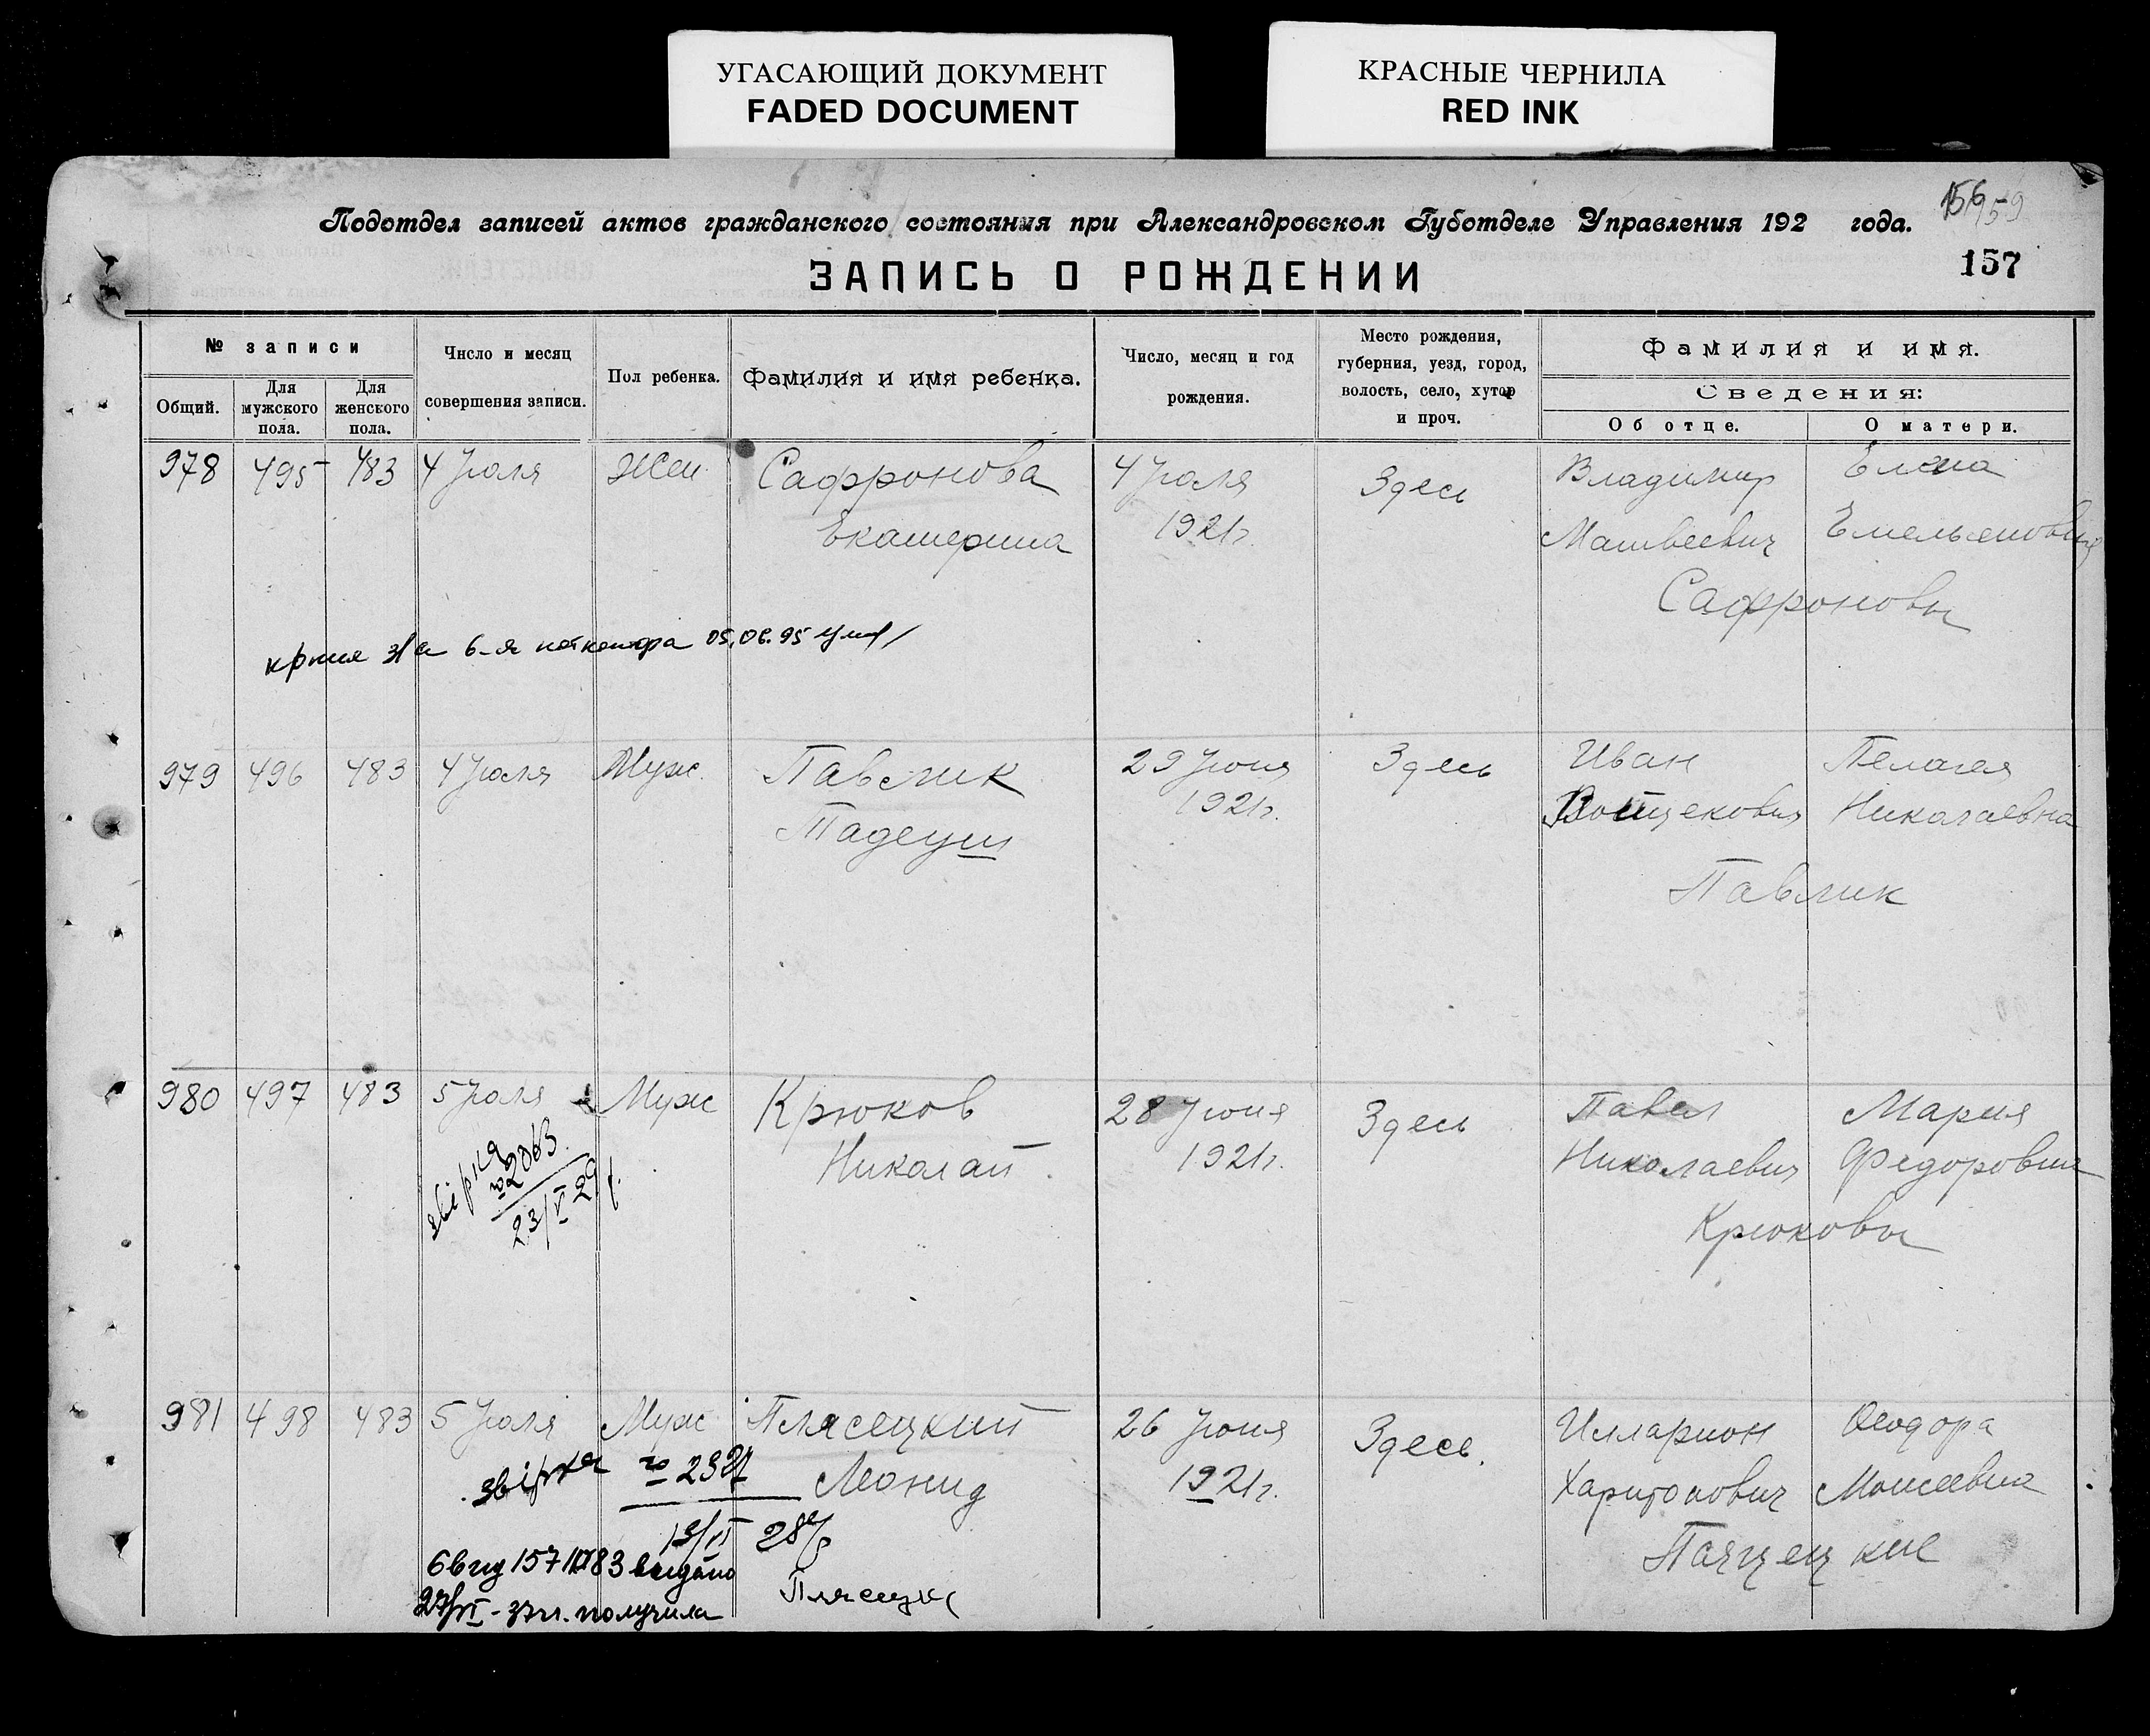 УГАСАЮЩИЙ ДОКУМЕНТ
FADED DOCUMENT
КРАСНЫЕ ЧЕРНИЛА
RED INK
Подотдел записей актов гражданского состояния при Александровском Губотделе Управления 192 года.
157
ЗАПИСЬ О РОЖДЕНИИ
№ записи
Общий.
Для мужского пола.
Для женского пола.
Число и месяц
совершения записи.
Пол ребенка.
Фамилия и имя ребенка.
Число, месяц и год
рождения.
Место рождения,
губерния, уезд, город,
волость, село, хутор
и проч.
Фамилия и имя.
Сведения:
Об отце.
О матери.
978 495 483 4 Июля Жен. Сафронова 4 Июля Здесь Владимир Елена
Екатерина 1921г. Матвеевич Емельеновна
Сафроновы
05.06.95
979 496 483 4 Июля Муж. Павлик 29 Июня Здесь Иван Пелагея
Тадеуш 1921г. Войцекович Николаевна
Павлик
980 497 483 5 Июля Муж Крюков 28 Июня Здесь Павел Мария
Николай 1921г. Николаевич Федоровна
Крюковы
звірна
№ 2063
23/V 29
981 498 483 5 Июля Муж Плясецкий 26 Июня Здесь. Илларион Феодора
Леонид 1921г. Харитонович Моисеевна
звірна №
выдано
27/VI - 37г. получила Плясецк